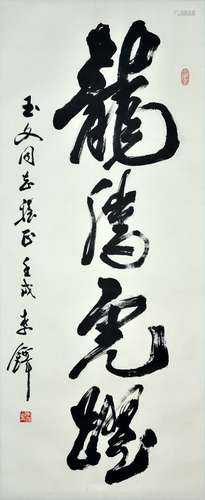 龍騰虎躍
玉文同志雅正 壬戌 李鐸